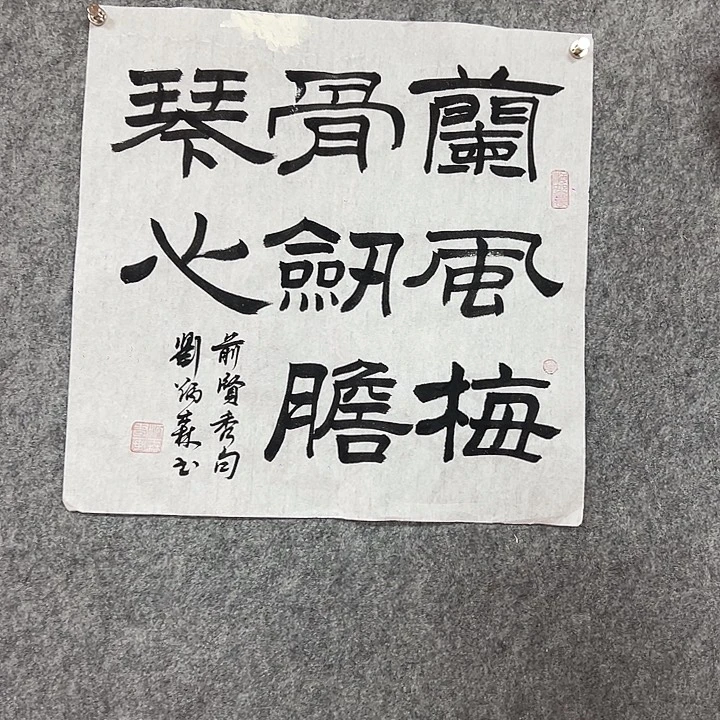 蘭風梅
骨劒膽
琴心
前賢秀句
劉炳森书